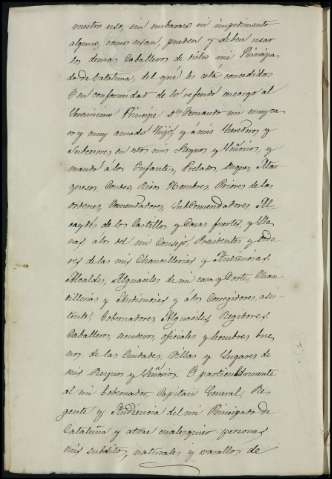 nuestro uso, sin embarazo ni impedimento
alguno, como usan, pueden y deben usar
los demas Caballeros de dicho mi Principa-
do de Cataluña, del qual les está concedido.
Y en conformidad de lo referido encargo al
Serenisimo Principe Dn. Fernando mi muy ca-
ro y muy amado Hijo, y á mis herederos y
Subcesores, en estos mis Reynos y Señorios; y
mando á los Infantes, Prelados, Duques, Mar-
queses, Condes, Ricos Hombres, Priores de las
Ordenes, Comendadores, Subcomendadores, Al-
caydes de los Castillos y Casas fuertes, y Lla-
nas, á los del mi Consejo, Presidentes y Oydo-
res de las mis Chancillerias y Audiencias
Alcaldes, Alguaciles de mi casa y Corte, Chan-
cillerias y Audiencias y a los Corregidores, asis-
tente, Gobernadores Alguaciles Regidores
Caballeros, escuderos, oficiales y hombres bue-
nos, de las Ciudades, Villas y Lugares de
mis Reynos y Señorios. Y particularmente
al mi Gobernador Capitan General, Re-
gente y Audiencia del mi Principado de
Cataluña y otras qualesquier personas
mis subditos, naturales y vasallos de